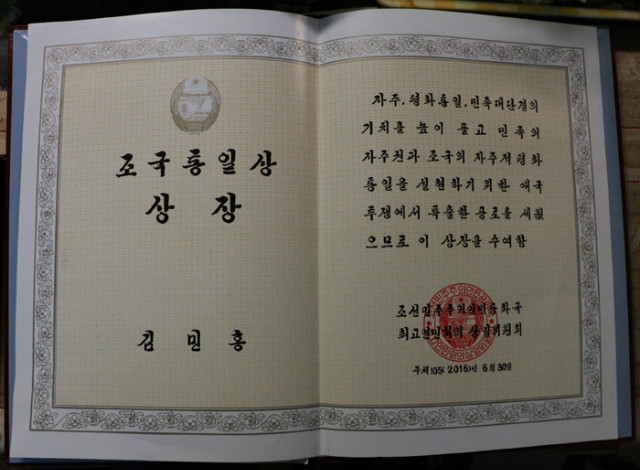 조국통일상
상장
김민홍
자주, 평화통일, 민족대단결의
기치를 높이 들고 민족의
자주권과 조국의 자주적평화
통일을 실현하기 위한 애국
투쟁에서 특출한 공로를 세웠
으므로 이 상장을 수여함
조선민주주의인민공화국
최고인민회의 상임위원회
주체105(2016)년 6월 30일